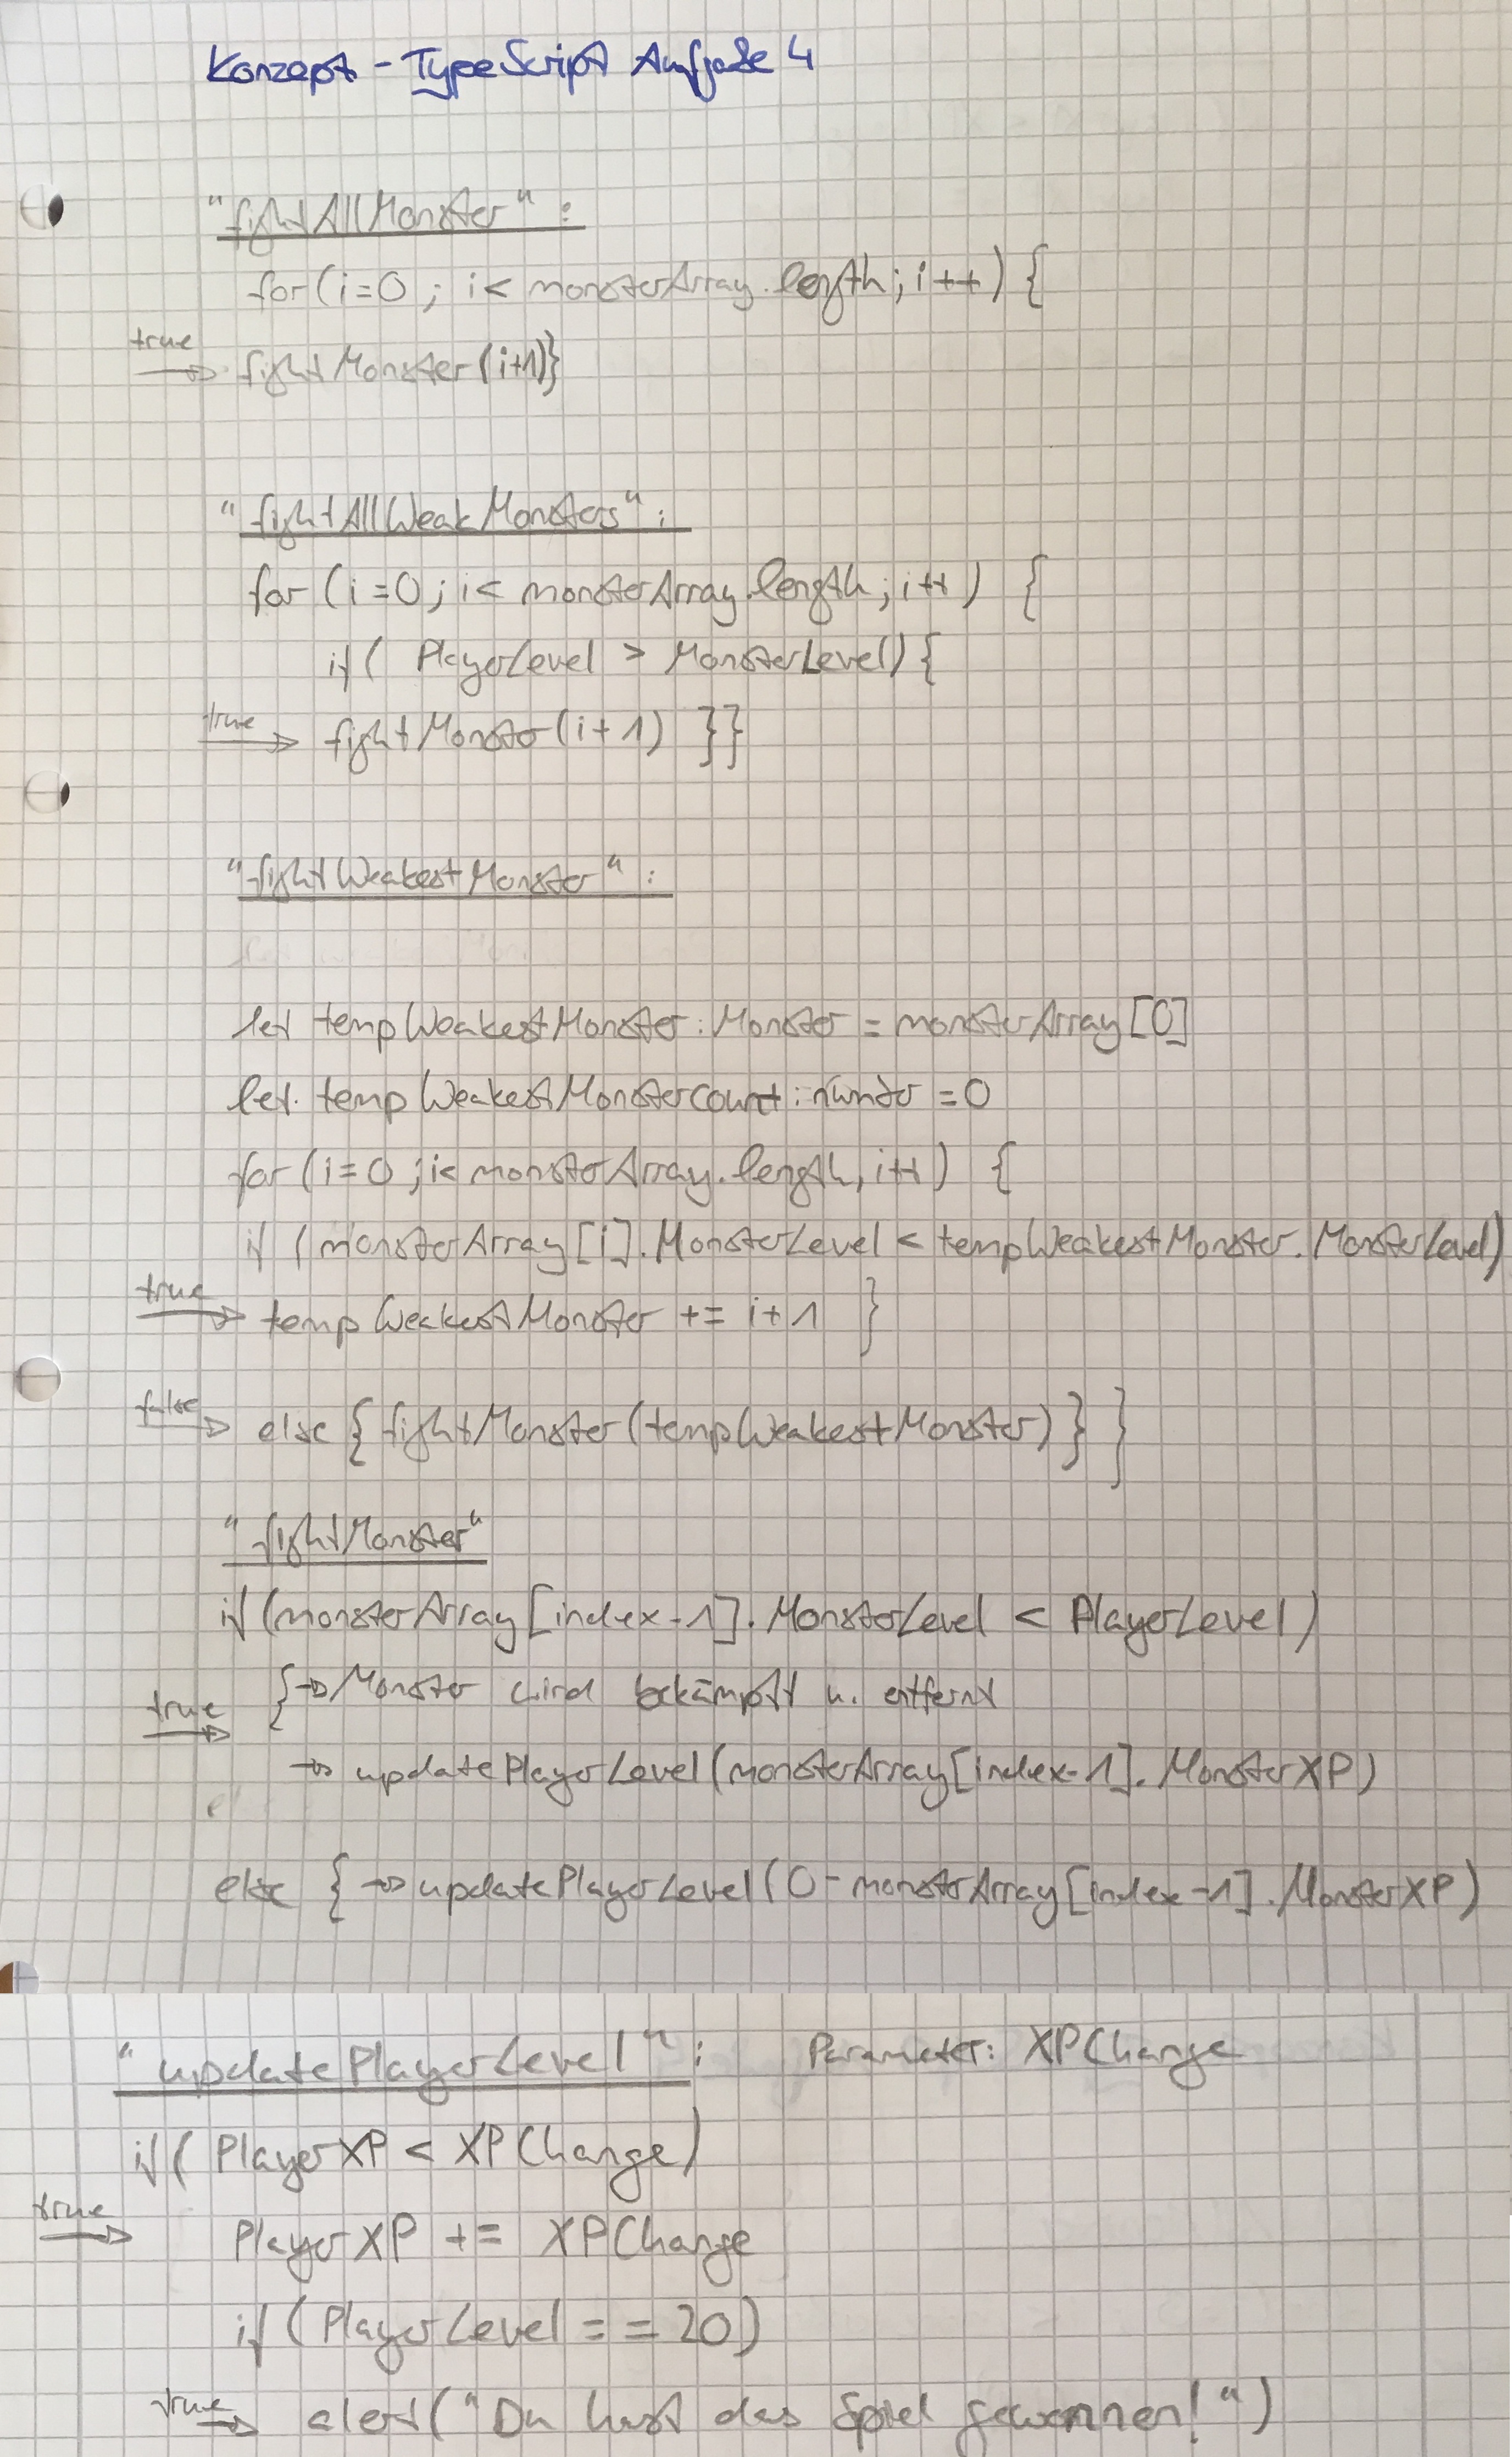 Konzept - TypeScript Aufgabe 4
"fightAllMonster" :
for (i=0 ; i< monsterArray.length ; i++) {
true
fightMonster (i+1)}
"fightAllWeakMonsters" :
for (i=0 ; i< monsterArray.length ; i++) {
if ( PlayerLevel > MonsterLevel) {
true
fightMonster (i+1) }}
"fightWeakestMonster" :
let tempWeakestMonster : Monster = monsterArray [0]
let tempWeakestMonstercount : number = 0
for (i=0 ; i< monsterArray.length, i++) {
if (monsterArray [i]. MonsterLevel < tempWeakestMonster. MonsterLevel)
true
tempWeakestMonster += i+1 }
false
else { fightMonster (tempWeakestMonster) } }
"fightMonster"
if (monsterArray [index-1]. MonsterLevel < PlayerLevel)
{→ Monster wird bekämpft u. entfernt
true
→ updatePlayerLevel (monsterArray[index-1]. MonsterXP)
else { → updatePlayerLevel (0 - monsterArray [index-1]. MonsterXP)
"updatePlayerLevel" : Parameter: XPChange
if ( PlayerXP < XPChange)
true
PlayerXP += XPChange
if ( PlayerLevel == 20)
true
alert ("Du hast das Spiel gewonnen!")